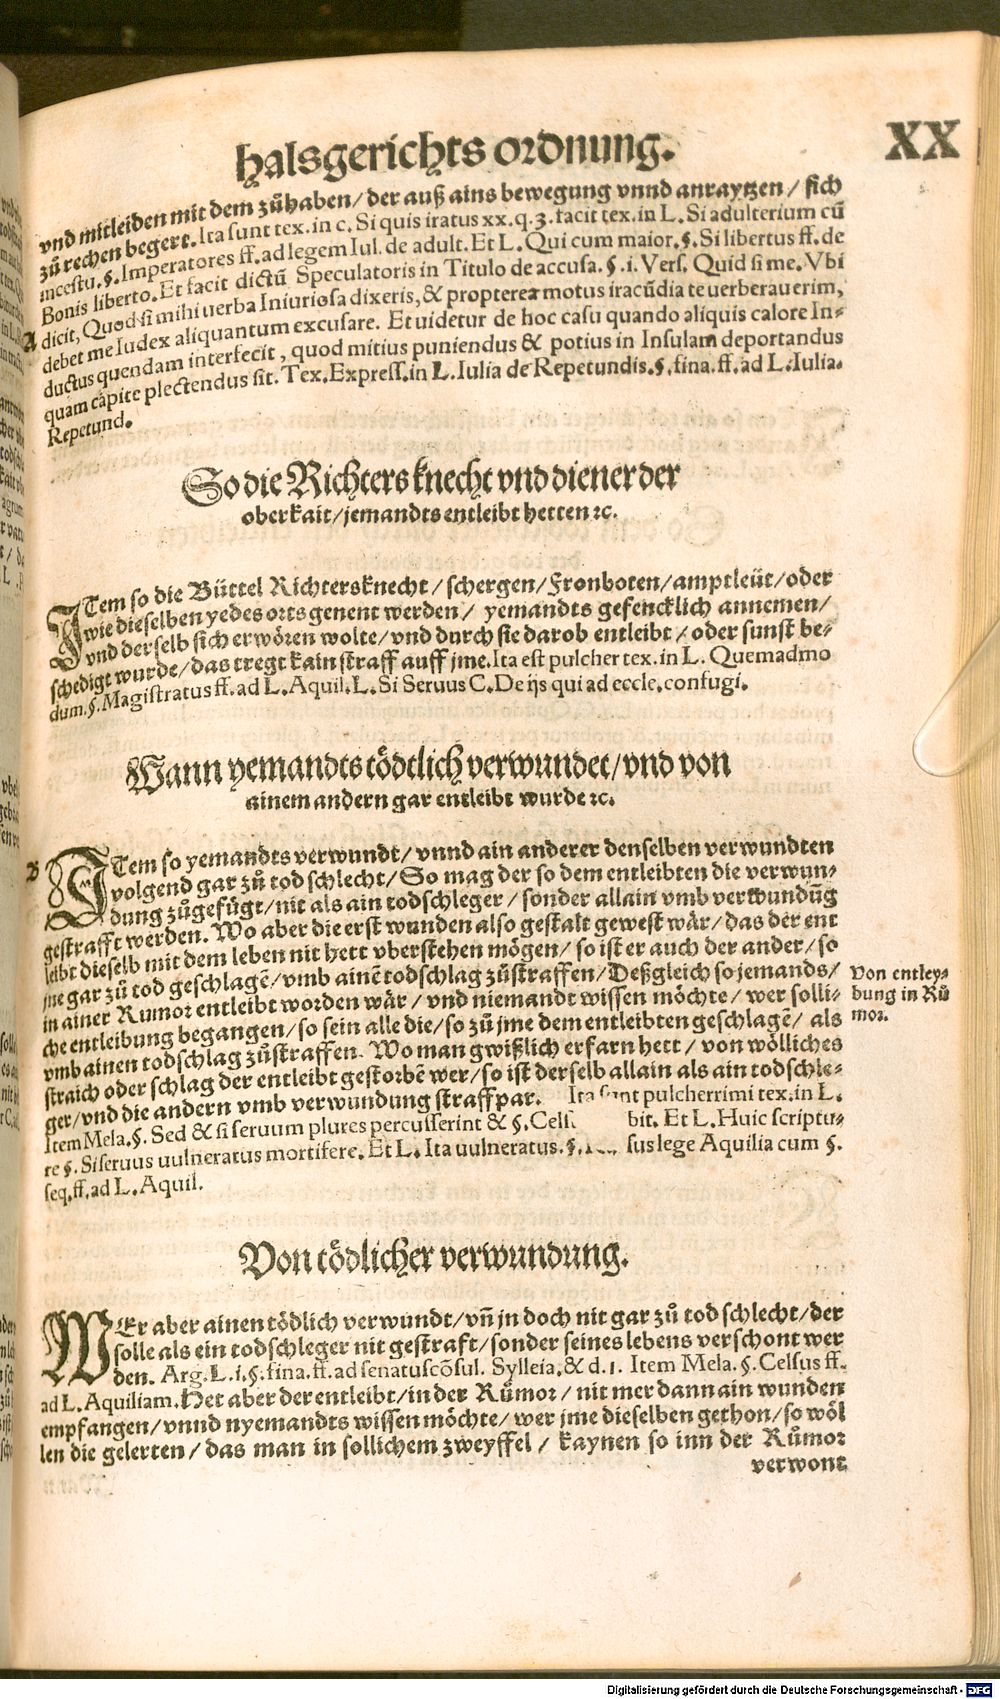 halsgerichts ordnung.
XX
vnd mitleiden mit dem zů haben/ der auß ains bewegung vnnd anraytzen/ sich
zů rechen begert. Ita sunt tex. in c. Si quis iratus xx. q. 3. facit tex. in L. Si adulterium cū
incestu. §. Imperatores ff. ad legem Iul. de adult. Et L. Qui cum maior. §. Si libertus ff. de
Bonis liberto. Et facit dictū Speculatoris in Titulo de accusa. §. i. Vers. Quid si me. Vbi
A dicit, Quod si mihi uerba Iniuriosa dixeris, & propterea motus iracūdia te uerberauerim,
debet me Iudex aliquantum excusare. Et uidetur de hoc casu quando aliquis calore In-
ductus quendam interfecit, quod mitius puniendus & potius in Insulam deportandus
quam capite plectendus sit. Tex. Express. in L. Iulia de Repetundis. §. fina. ff. ad L. Iulia.
Repetund.
So die Richters knecht vnd diener der
oberkait/ jemandts entleibt hetten ꝛc.
ITem so die Büttel Richtersknecht/ schergen/ Fronboten/ amptleüt/ oder
wie dieselben yedes orts genent werden/ yemandts gefencklich annemen/
vnd derselb sich erwören wolte/ vnd durch sie darob entleibt/ oder sunst be-
schedigt wurde/ das tregt kain straff auff jme. Ita est pulcher tex. in L. Quemadmo
dum. §. Magistratus ff. ad L. Aquil. L. Si Seruus C. De ijs qui ad eccle. confugi.
Wann yemandts tödtlich verwundet/ vnd von
ainem andern gar entleibt wurde ꝛc.
B ITem so yemandts verwundt/ vnnd ain anderer denselben verwundten
volgend gar zů tod schlecht/ So mag der so dem entleibten die verwun-
dung zůgefügt/ nit als ain todschleger/ sonder allain vmb verwundūg
gestrafft werden. Wo aber die erst wunden also gestalt gewest wär/ das der ent
leibt dieselb mit dem leben nit hett vberstehen mögen/ so ist er auch der ander/ so
jne gar zů tod geschlagē/ vmb ainē todschlag zůstraffen/ Deßgleich so jemands/
in ainer Rumor entleibt worden wär/ vnd niemandt wissen möchte/ wer solli-
che entleibung begangen/ so sein alle die/ so zů jme dem entleibten geschlagē/ als
vmb ainen todschlag zůstraffen. Wo man gwißlich erfarn hett/ von wölliches
straich oder schlag der entleibt gestorbē wer/ so ist derselb allain als ain todschle-
ger/ vnd die andern vmb verwundung straffpar. Ita sunt pulcherrimi tex. in L.
Item Mela. §. Sed & si seruum plures percusserint & §. Cels bit. Et L. Huic scriptu-
re §. Si seruus uulneratus mortifere. Et L. Ita uulneratus. §. sus lege Aquilia cum §.
seq. ff. ad L. Aquil.
Von entley-
bung in Rů
mor.
Von tödlicher verwundung.
WEr aber ainen tödlich verwundt/ vñ jn doch nit gar zů tod schlecht/ der
solle als ein todschleger nit gestraft/ sonder seines lebens verschont wer
den. Arg. L. i. §. fina. ff. ad senatuscōsul. Sylleia. & d. 1. Item Mela. §. Celsus ff.
ad L. Aquiliam. Het aber der entleibt/ in der Růmor/ nit mer dann ain wunden
empfangen/ vnnd nyemandts wissen möchte/ wer jme dieselben gethon/ so wöl
len die gelerten/ das man in sollichem zweyffel/ kaynen so inn der Růmor
verwont
Digitalisierung gefördert durch die Deutsche Forschungsgemeinschaft - DFG